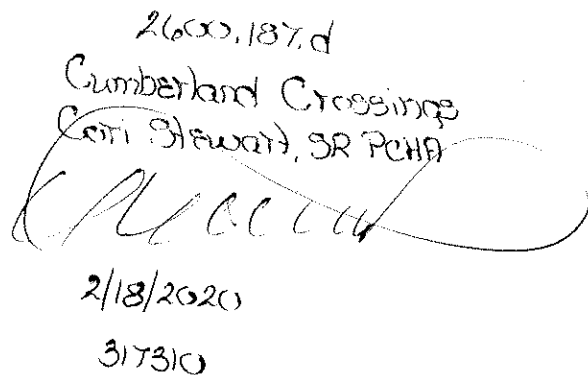 2600.187.d
Cumberland Crossings
Cerri Stewart, SR PCHA
2/18/2020
317310